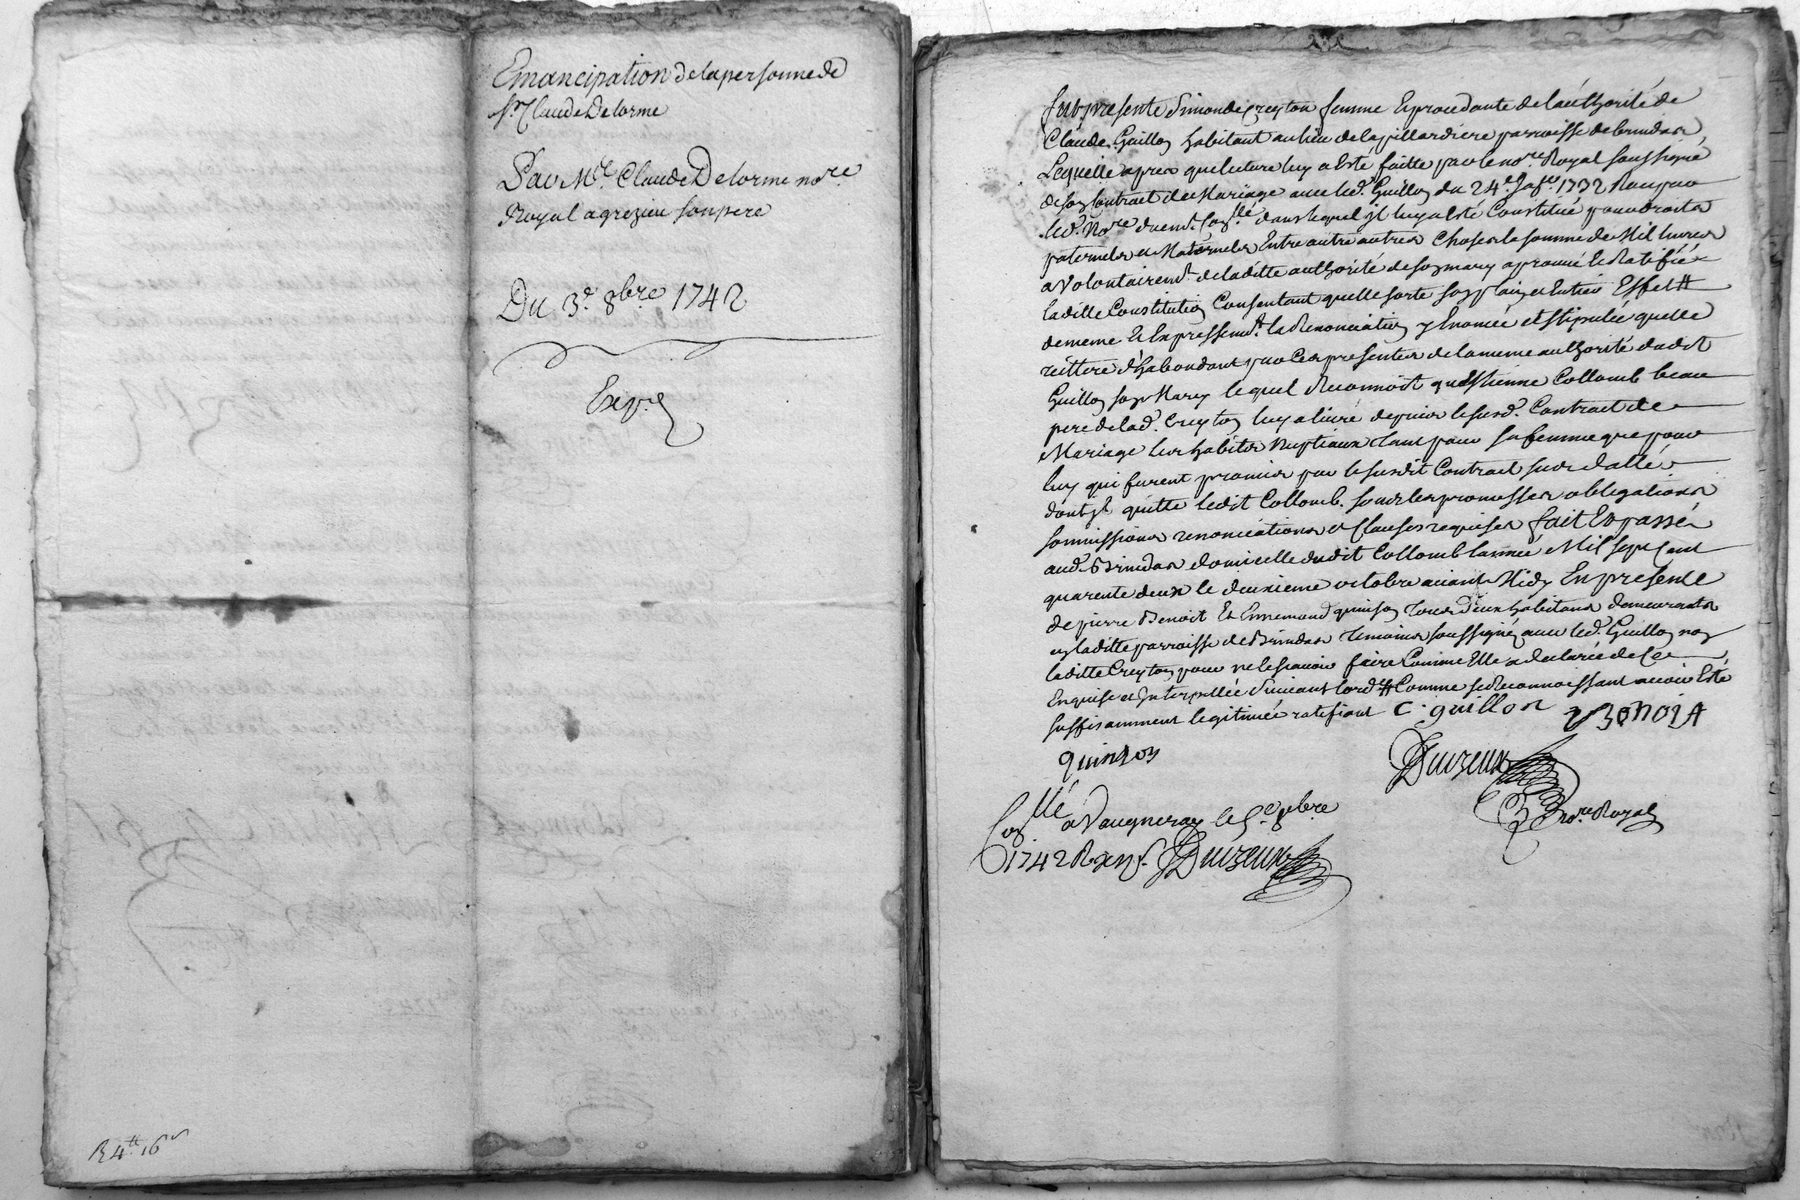 Emancipation de la personne de
Sr. Claude Delorme
Par Mre. Claude Delorme nore.
Royal a grezieu son pere
Du 3e. 8bre 1742
Exp.
R 4tt 16s
fut presente Simonde Creyton femme Et procedante de lauthorité de
Claude Guillon habitant au lieu de la pillardiere parroisse de brindas
Lequelle apres que lecture luy a Esté faitte par le nore. Royal soussigné
de son Contract de Mariage avec led. Guillon du 24e. 1732 Receu par
led. Nore duem. Conllé dans lequel jl luy a Esté Constitué pour droits
paternels et Maternels Entre autre autres Choses la somme de Mil livres
a volontairemt. de laditte authorité de son mary aprouvé Et Ratifié
laditte Constitution Consentant quelle sorte son plain et Entier Effet
de meme Et Expressemt. la Renonciation y Enoncée et stipulée quelle
reittere d'habondant par Ces presentes de la meme authorité dudit
Guillon son Mary lequel Reconnoit qu'Estienne Collomb beau
pere de lad. Creyton luy a livré depuis le susd. Contract de
Mariage les habits Nuptiaux tant pour sa femme que pour
luy qui furent promis par le susdit Contract sus datté
dont jl quitte ledit Collomb sous les promesses obligations
soumissions renonciations et Clauses requises fait Et passé
aud. Brindas domicille dudit Collomb lannée Mil sept Cent
quarente deux le deuxieme octobre avant Midy En presence
de pierre Benoit Et Ennemond quinson tous deux habitans demeurants
en laditte parroisse de Brindas temoins soussignés avec led. Guillon non
laditte Creyton pour ne le scavoir faire Comme Elle a declarée de Ce
Enquise et Interpellée Suivant lord. Comme se Reconnoessant avoir Esté
suffisamment legitimée ratifiant C. guillon P Benoit
quinson
Duizeux
nore. Royal
Conllé à Vaugneray le 5e 8bre
1742 R Duizeux